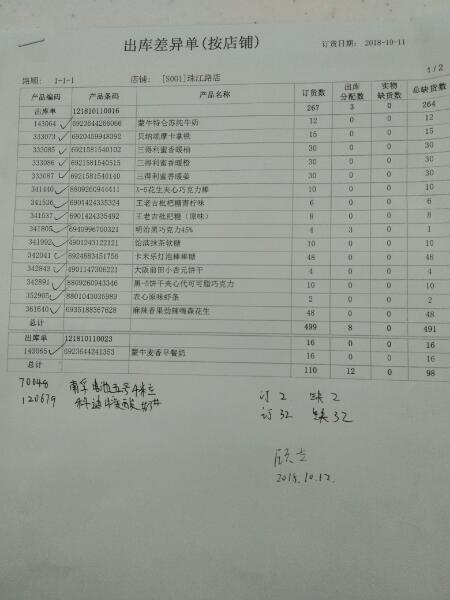 出库差异单(按店铺)
订货日期： 2018-10-11
路顺： 1-1-1 店铺： [S001]珠江路店
1/2
产品编码 产品条码 产品名称 订货数 出库分配数 实物缺货数 总缺货数
出库单 121810110016 267 3 0 264
143064 6923644266066 蒙牛特仑苏纯牛奶 12 0 0 12
333073 6920459948392 贝纳颂摩卡拿铁 15 0 0 15
333085 6921581540102 三得利蜜香暖柚 30 0 0 30
333086 6921581540515 三得利蜜香暖橙 30 0 0 30
333087 6921581540140 三得利蜜香暖姜 30 0 0 30
341440 8809260944411 X-5花生夹心巧克力棒 10 0 0 10
341536 6901424335324 王老吉枇杷糖青柠味 6 0 0 6
341537 6901424335492 王老吉枇杷糖（原味） 0 0
341805 6949996700321 明治黑巧克力45% 4 3 0 1
341992 4901243122121 抹茶软糖 10 0 0 10
342041 8924683451756 卡米乐灯泡棒棒糖 48 0 0 48
342843 4901147306221 大阪前田小杏元饼干 4 0 0 4
342891 8809260943346 黑-5饼干夹心代可可脂巧克力 10 0 0 10
352905 8801043036989 农心原味虾条 2 0 0 2
361640 6935188367628 麻辣香果劲辣嗨森花生 48 0 0 48
总计 499 8 0 491
出库单 121810110023 16 0 0 16
143065 6923644241353 蒙牛麦香早餐奶 16 0 0 16
总计 110 12 0 98
70048 南孚电池五号4粒 订 2 缺 2
120679 订 32 缺 32
2018.10.12.